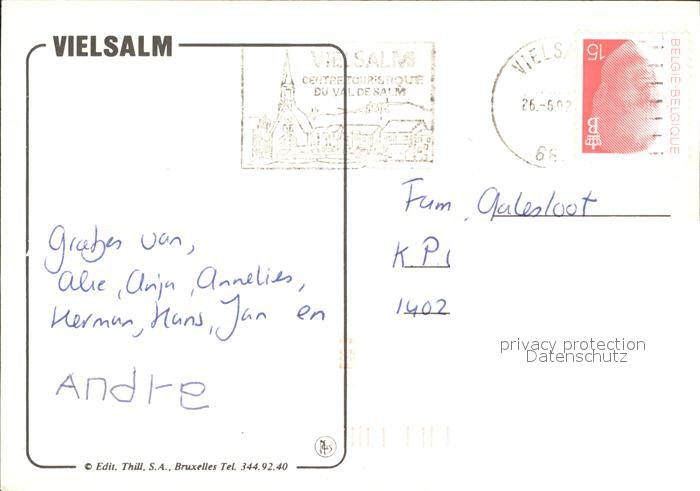 VIELSALM
VIELSALM
CENTRE TOURISTIQUE
DU VAL DE SALM
26.-6.92
15
BELGIE-BELGIQUE
Fam. Galesloot
K.P.
1402
Groetjes van,
Alie, Anja, Annelies,
Herman, Hans, Jan en
Andre
privacy protection
Datenschutz
© Edit. Thill, S.A., Bruxelles Tel. 344.92.40